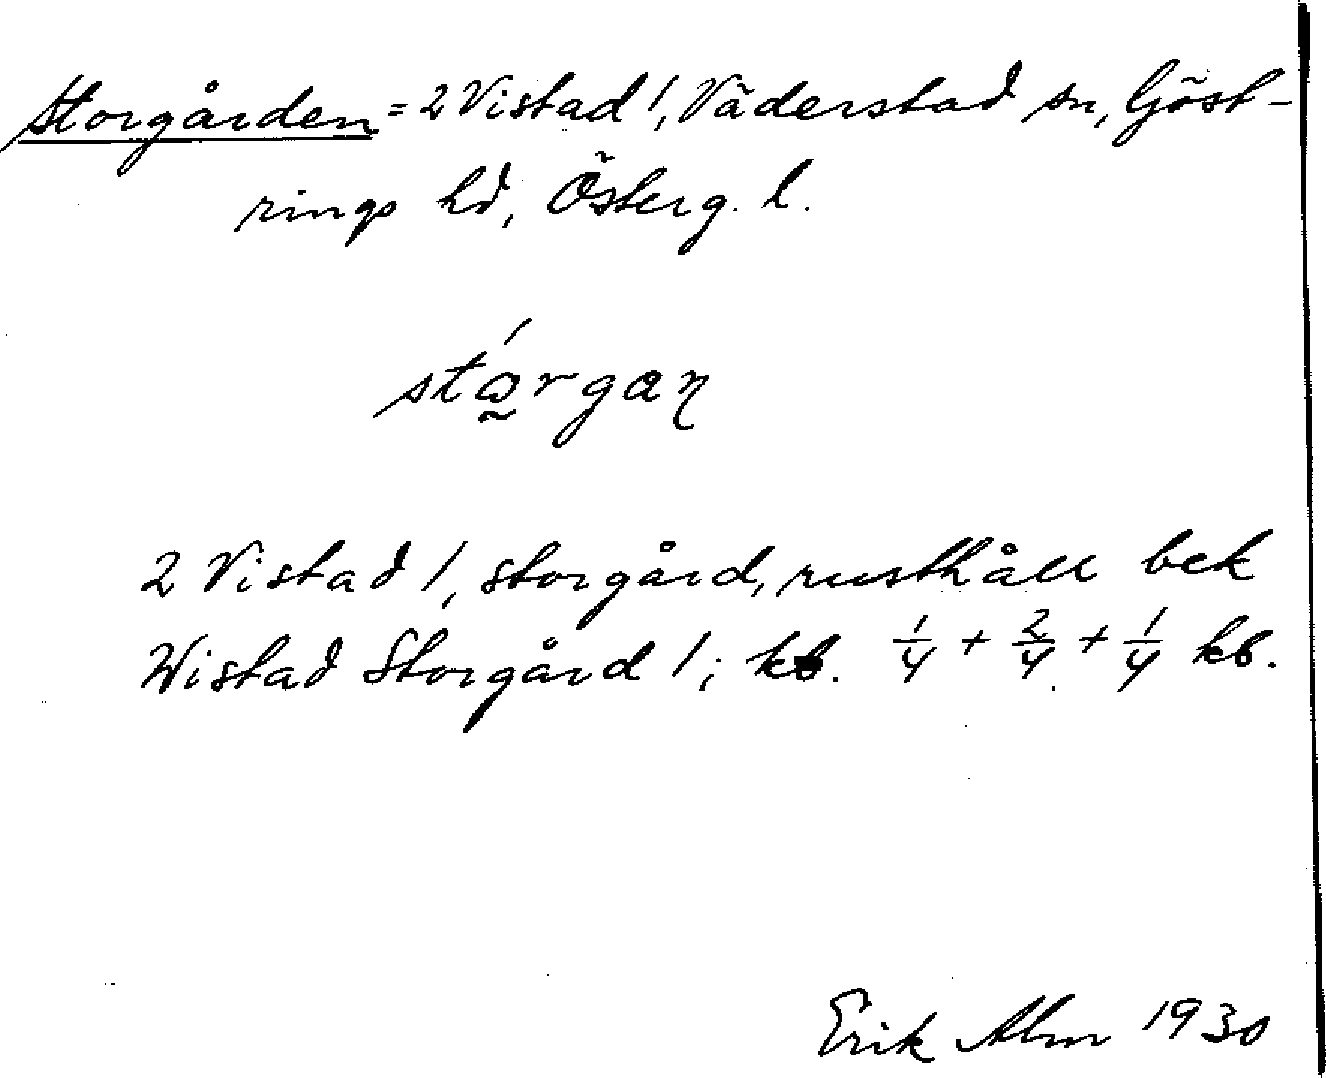 Storgården = 2 Vistad 1, Väderstad sn, Göst-
rings hd, Österg. l.
stórgan
2 Vistad 1, storgård, rusthåll bek
Wistad Storgård 1; kb. 1/4 + 2/4 + 1/4 kb.
Erik Alm 1930